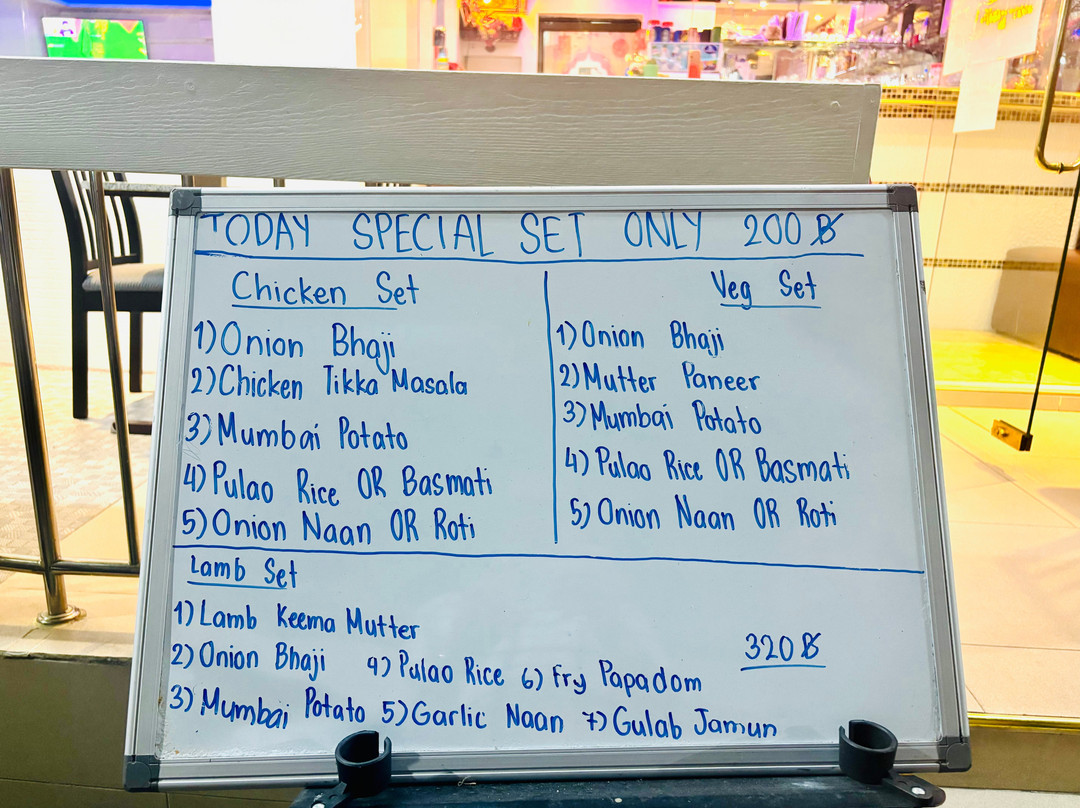 TODAY SPECIAL SET ONLY 200 ฿
Chicken Set
1) Onion Bhaji
2) Chicken Tikka Masala
3) Mumbai Potato
4) Pulao Rice OR Basmati
5) Onion Naan OR Roti
Veg Set
1) Onion Bhaji
2) Mutter Paneer
3) Mumbai Potato
4) Pulao Rice OR Basmati
5) Onion Naan OR Roti
Lamb Set
1) Lamb Keema Mutter
320 ฿
2) Onion Bhaji 4) Pulao Rice 6) Fry Papadom
3) Mumbai Potato 5) Garlic Naan 7) Gulab Jamun